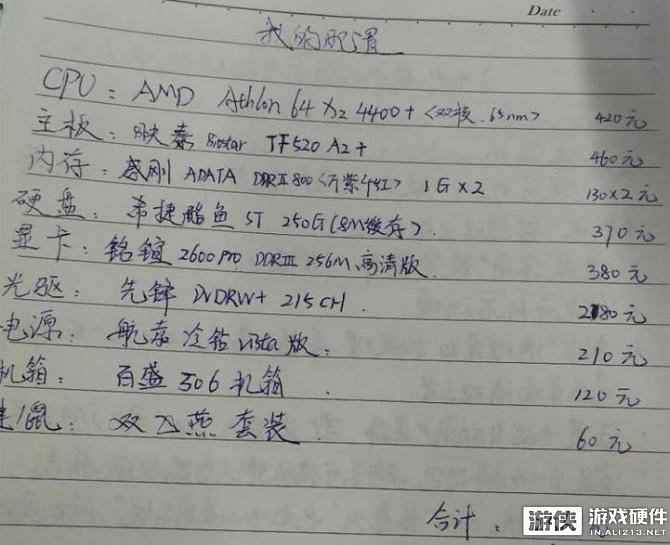 Date
我的配置
CPU：AMD Athlon 64 X2 4400+ <双核.65nm> 420元
主板：映泰 Biostar TF520 A2+ 460元
内存：威刚 ADATA DDRII800<万紫千红> 1G×2 130×2元
硬盘：希捷酷鱼 ST 250G(8M缓存). 370元
显卡：铭瑄 2600Pro DDRIII 256M 高清版. 380元
光驱：先锋 DVDRW+ 215CH. 280元
电源：航嘉 冷钻 vista版. 210元
机箱：百盛 306 机箱. 120元
鼠：双飞燕 套装. 60元
合计：
游侠 游戏硬件
IN.ALI213.NET